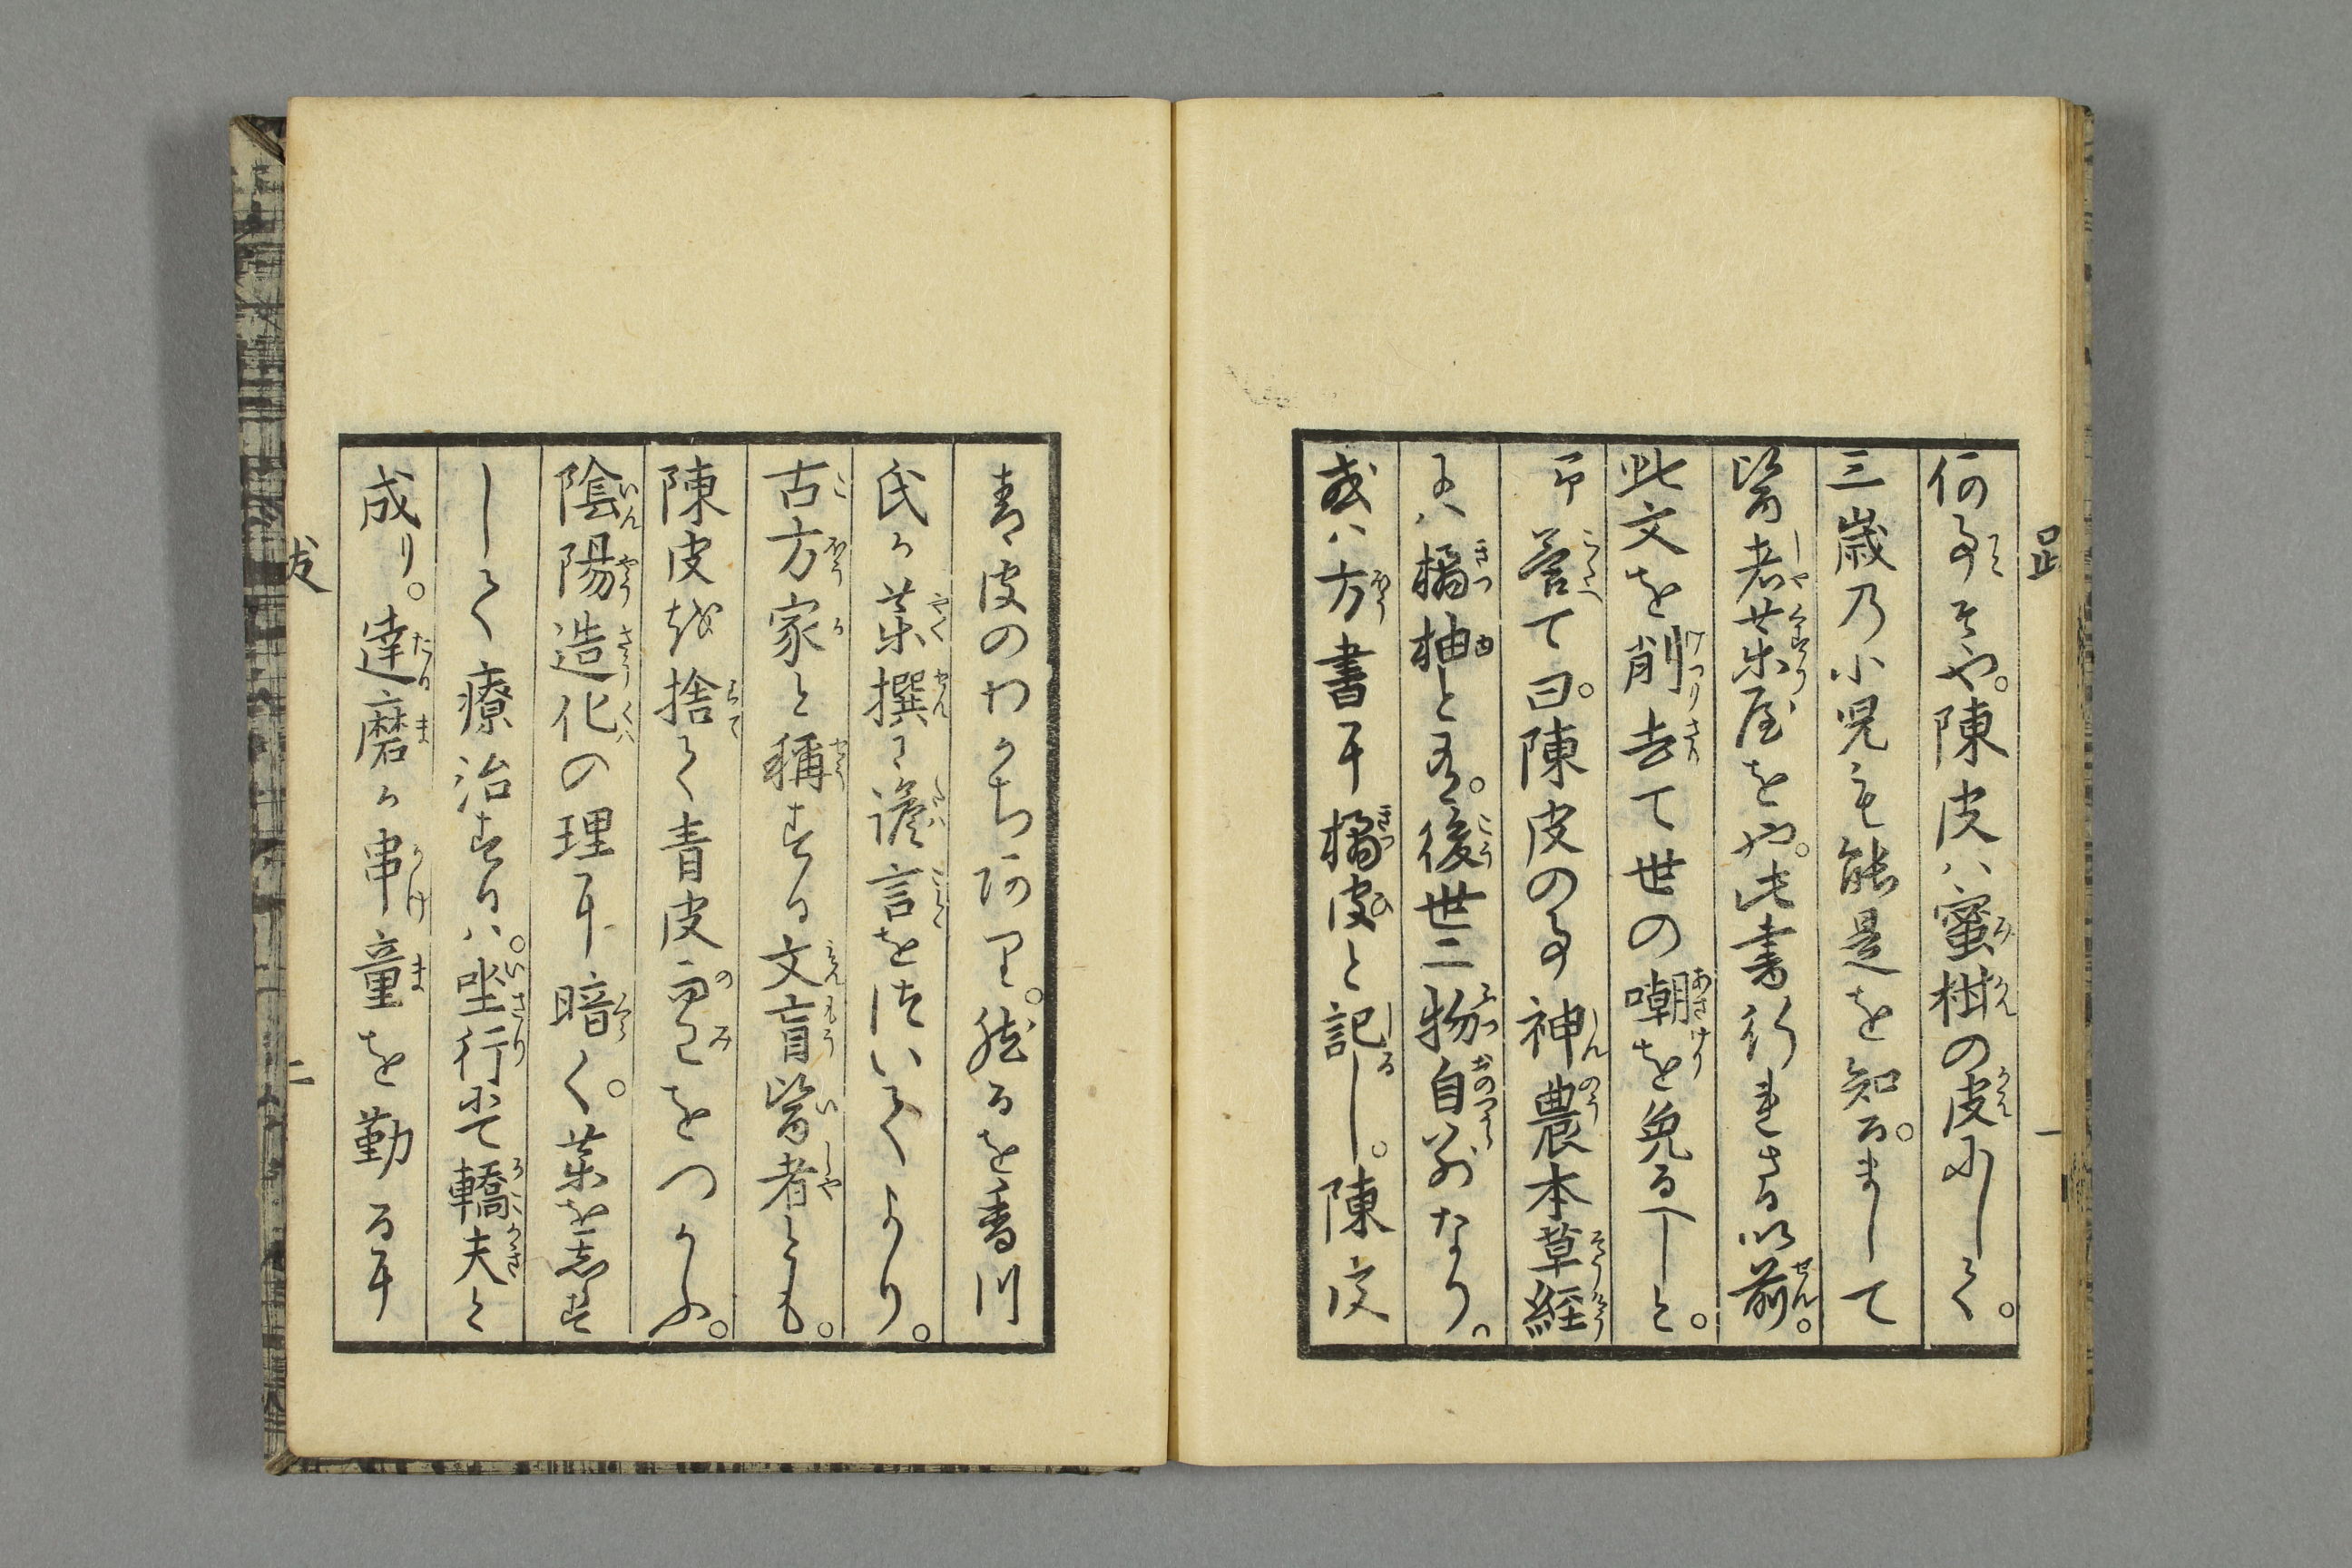 何事そや。陳皮ハ蜜柑の皮にして。
三歳乃小児も能是を知る。まして
医者薬屋をや。此書行れさる以前。
此文を削去て世の嘲を免るへしと。
予答て曰。陳皮の事神農本草経
にハ橘柚と有。後世二物自別なり。
或ハ方書に橘皮と記し。陳皮
青皮のわかち有り。然るを香川
氏か薬撰に譫言をはいてより。
古方家と称する文盲医者とも。
陳皮を捨て青皮而已をつかふ。
陰陽造化の理に暗く。薬を忘す
して療治するハ。坐行にて轎夫と
成り。達磨か串童を勤るに
一
二